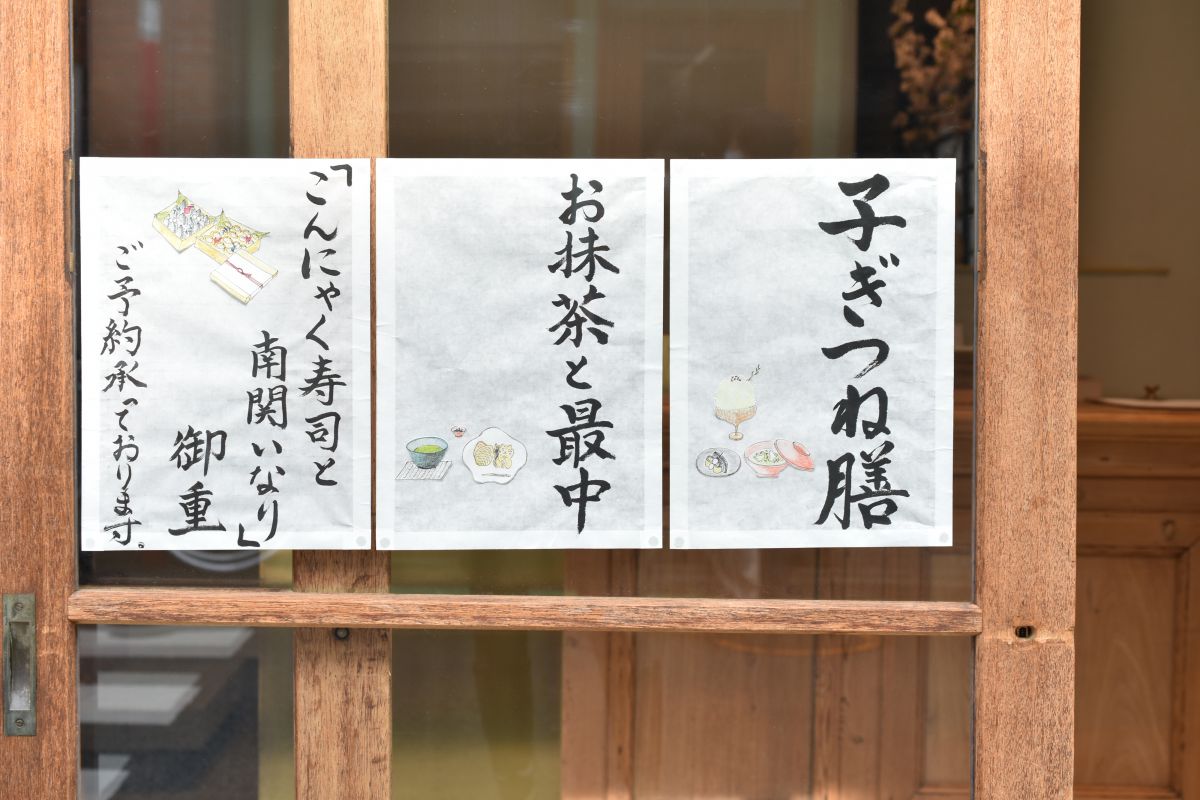 子ぎつね膳
お抹茶と最中
「こんにゃく寿司と
南関いなり」
御重
ご予約承っております。